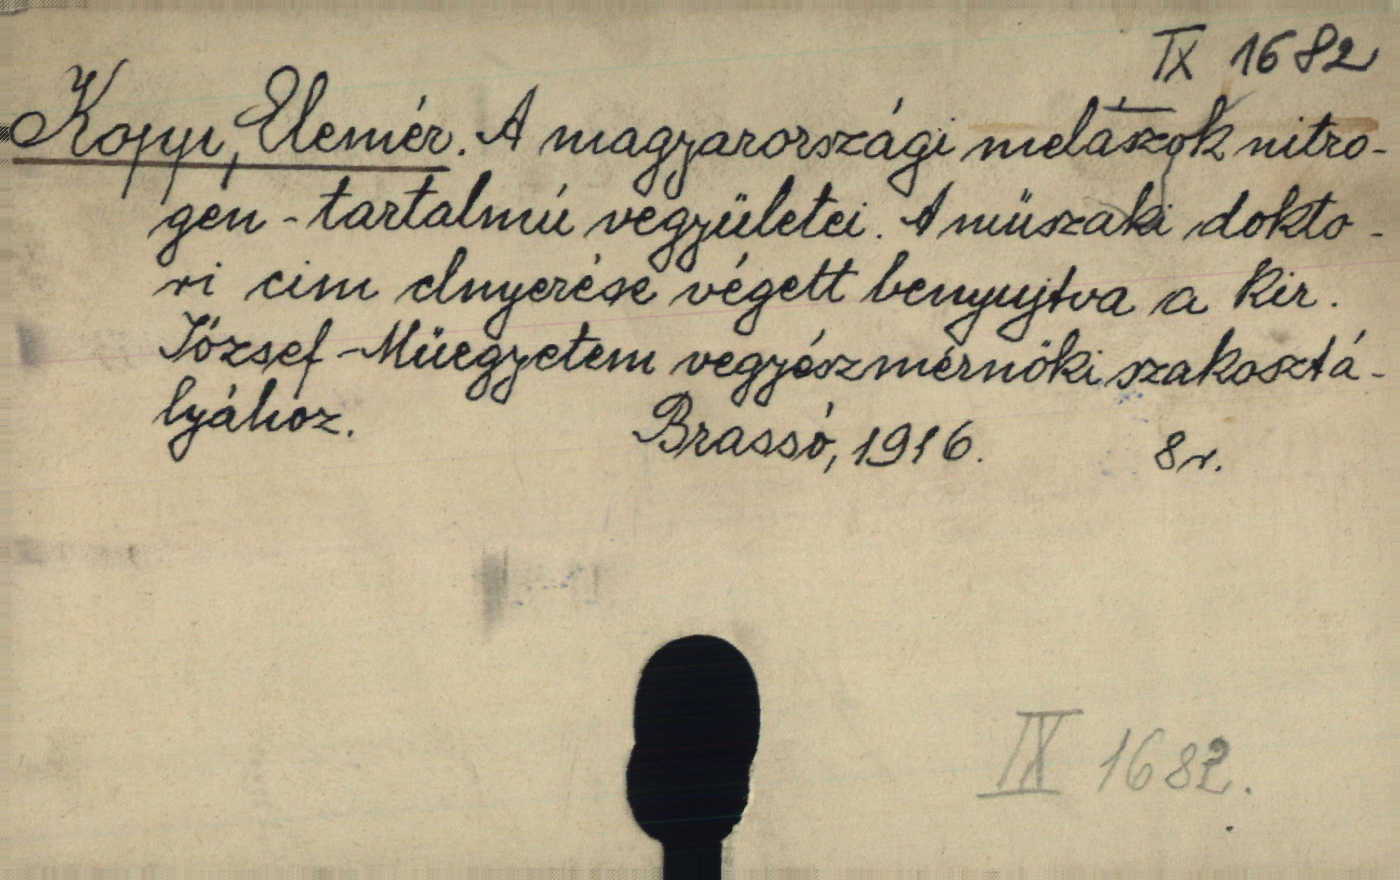 IX 1682
Kopp, Elemér. A magyarországi melászok nitro-
gén-tartalmú vegyületei. A müszaki dokto-
ri cim elnyerése végett benyujtva a kir.
József-Müegyetem vegyészmérnöki szakosztá-
lyához. Brassó, 1916. 8r.
IX 1682.